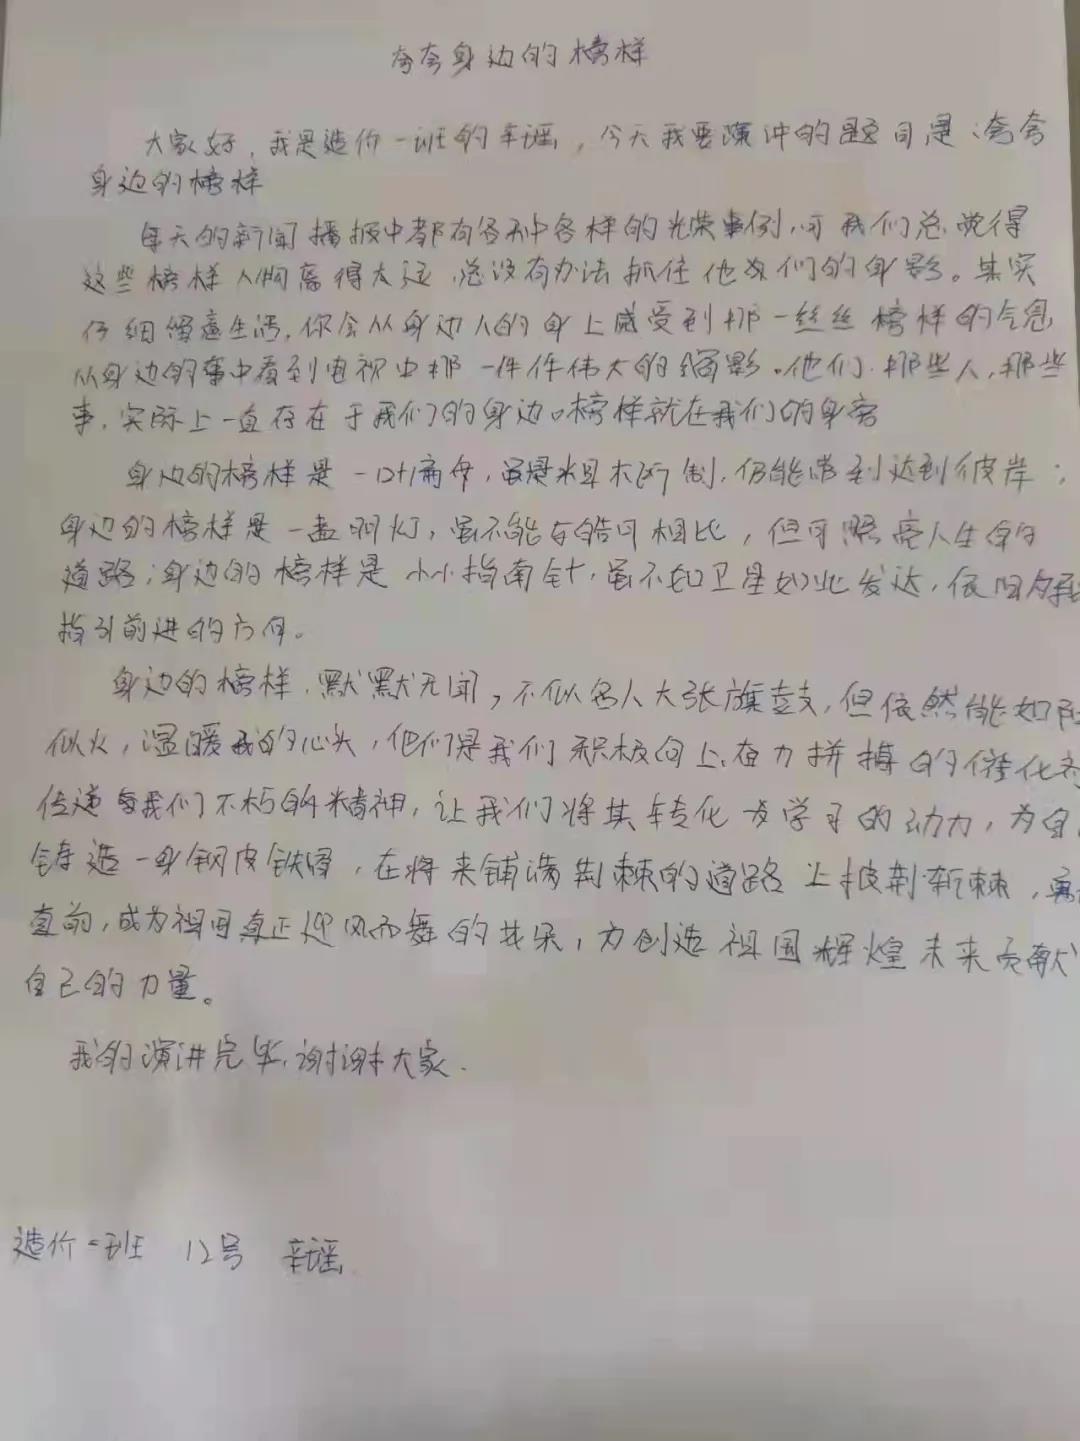 夸夸身边的榜样
大家好，我是造价一班的辛谣，今天我要演讲的题目是：夸夸
身边的榜样
每天的新闻播报中都有各种各样的光荣事例，可我们总觉得
这些榜样人物离得太远 总没有办法抓住他们的身影。其实
仔细留意生活，你会从身边人的身上感受到那一丝丝榜样的气息
从身边的事中看到电视中那一件件伟大的缩影。他们，那些人，那些
事，实际上一直存在于我们的身边。榜样就在我们的身旁
身边的榜样是一叶扁舟，虽是粗木所制，仍能带到达到彼岸；
身边的榜样是一盏明灯，虽不能与皓月相比，但可照亮人生的
道路；身边的榜样是小小指南针，虽不如卫星如此发达，依旧为我
指引前进的方向。
身边的榜样，默默无闻，不似名人大张旗鼓，但依然能如阳
似火，温暖我的心头，他们是我们积极向上奋力拼搏的催化剂
传递每我们不朽的精神，让我们将其转化为学习的动力，为自
铸造一身钢皮铁骨，在将来铺满荆棘的道路上披荆斩棘，勇
直前，成为祖国真正迎风而舞的花朵，为创造祖国辉煌未来贡献
自己的力量。
我的演讲完毕，谢谢大家.
造价一班 12号 辛谣